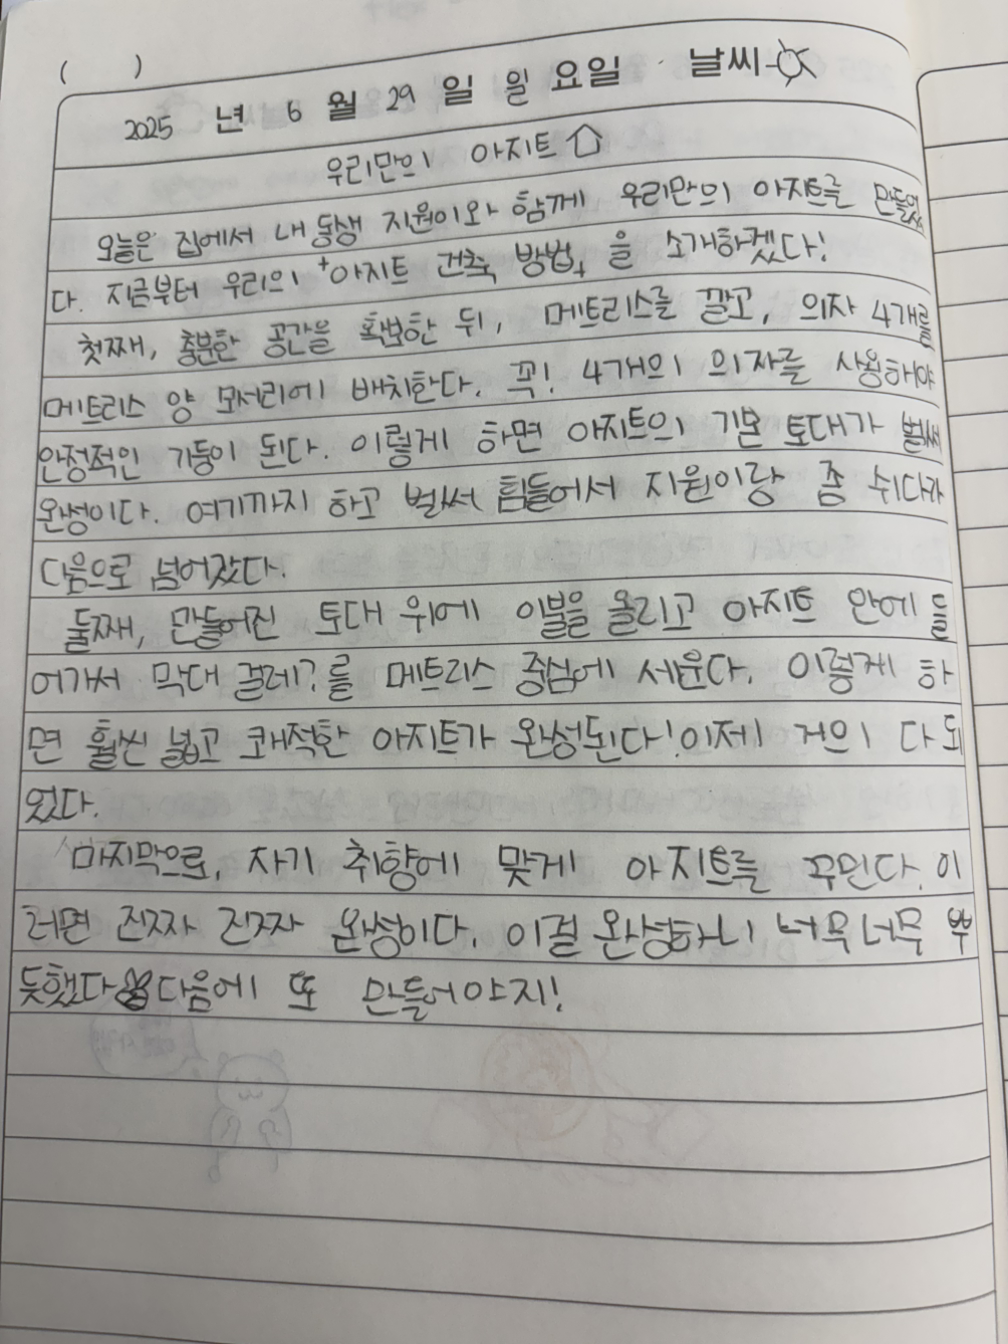 ( )
2025 년 6 월 29 일 일 요일 날씨
우리만의 아지트
오늘은 집에서 내 동생 지원이와 함께 우리만의 아지트를 만들었
다. 지금부터 우리의 +아지트 건축 방법+ 을 소개하겠다!
첫째, 충분한 공간을 확보한 뒤, 메트리스를 깔고, 의자 4개를
메트리스 양 모서리에 배치한다. 꼭! 4개의 의자를 사용해야
안정적인 기둥이 된다. 이렇게 하면 아지트의 기본 토대가 벌써
완성이다. 여기까지 하고 벌써 힘들어서 지원이랑 좀 쉬다가
다음으로 넘어갔다.
둘째, 만들어진 토대 위에 이불을 올리고 아지트 안에 들
어가서 막대 걸레?를 메트리스 중심에 세운다. 이렇게 하
면 훨씬 넓고 쾌적한 아지트가 완성된다! 이제 거의 다 되
었다.
마지막으로, 자기 취향에 맞게 아지트를 꾸민다. 이
러면 진짜 진짜 완성이다. 이걸 완성하니 너무너무 뿌
듯했다 다음에 또 만들어야지!